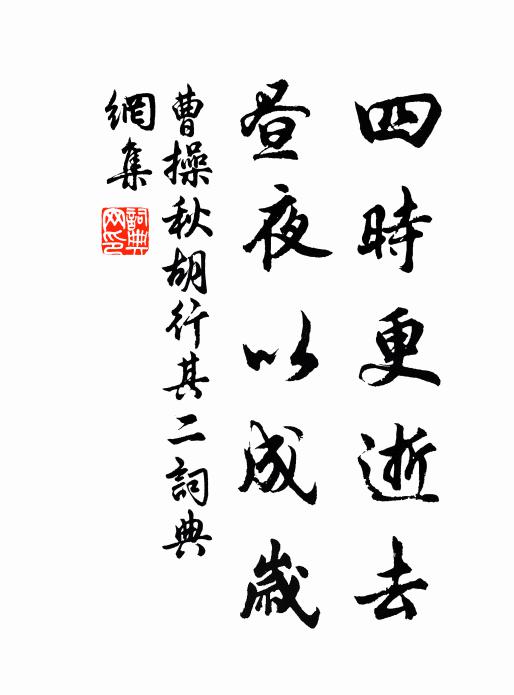 四時更逝去
昼夜以成歲
曹操秋胡行其二詞典
網集
詞典網印